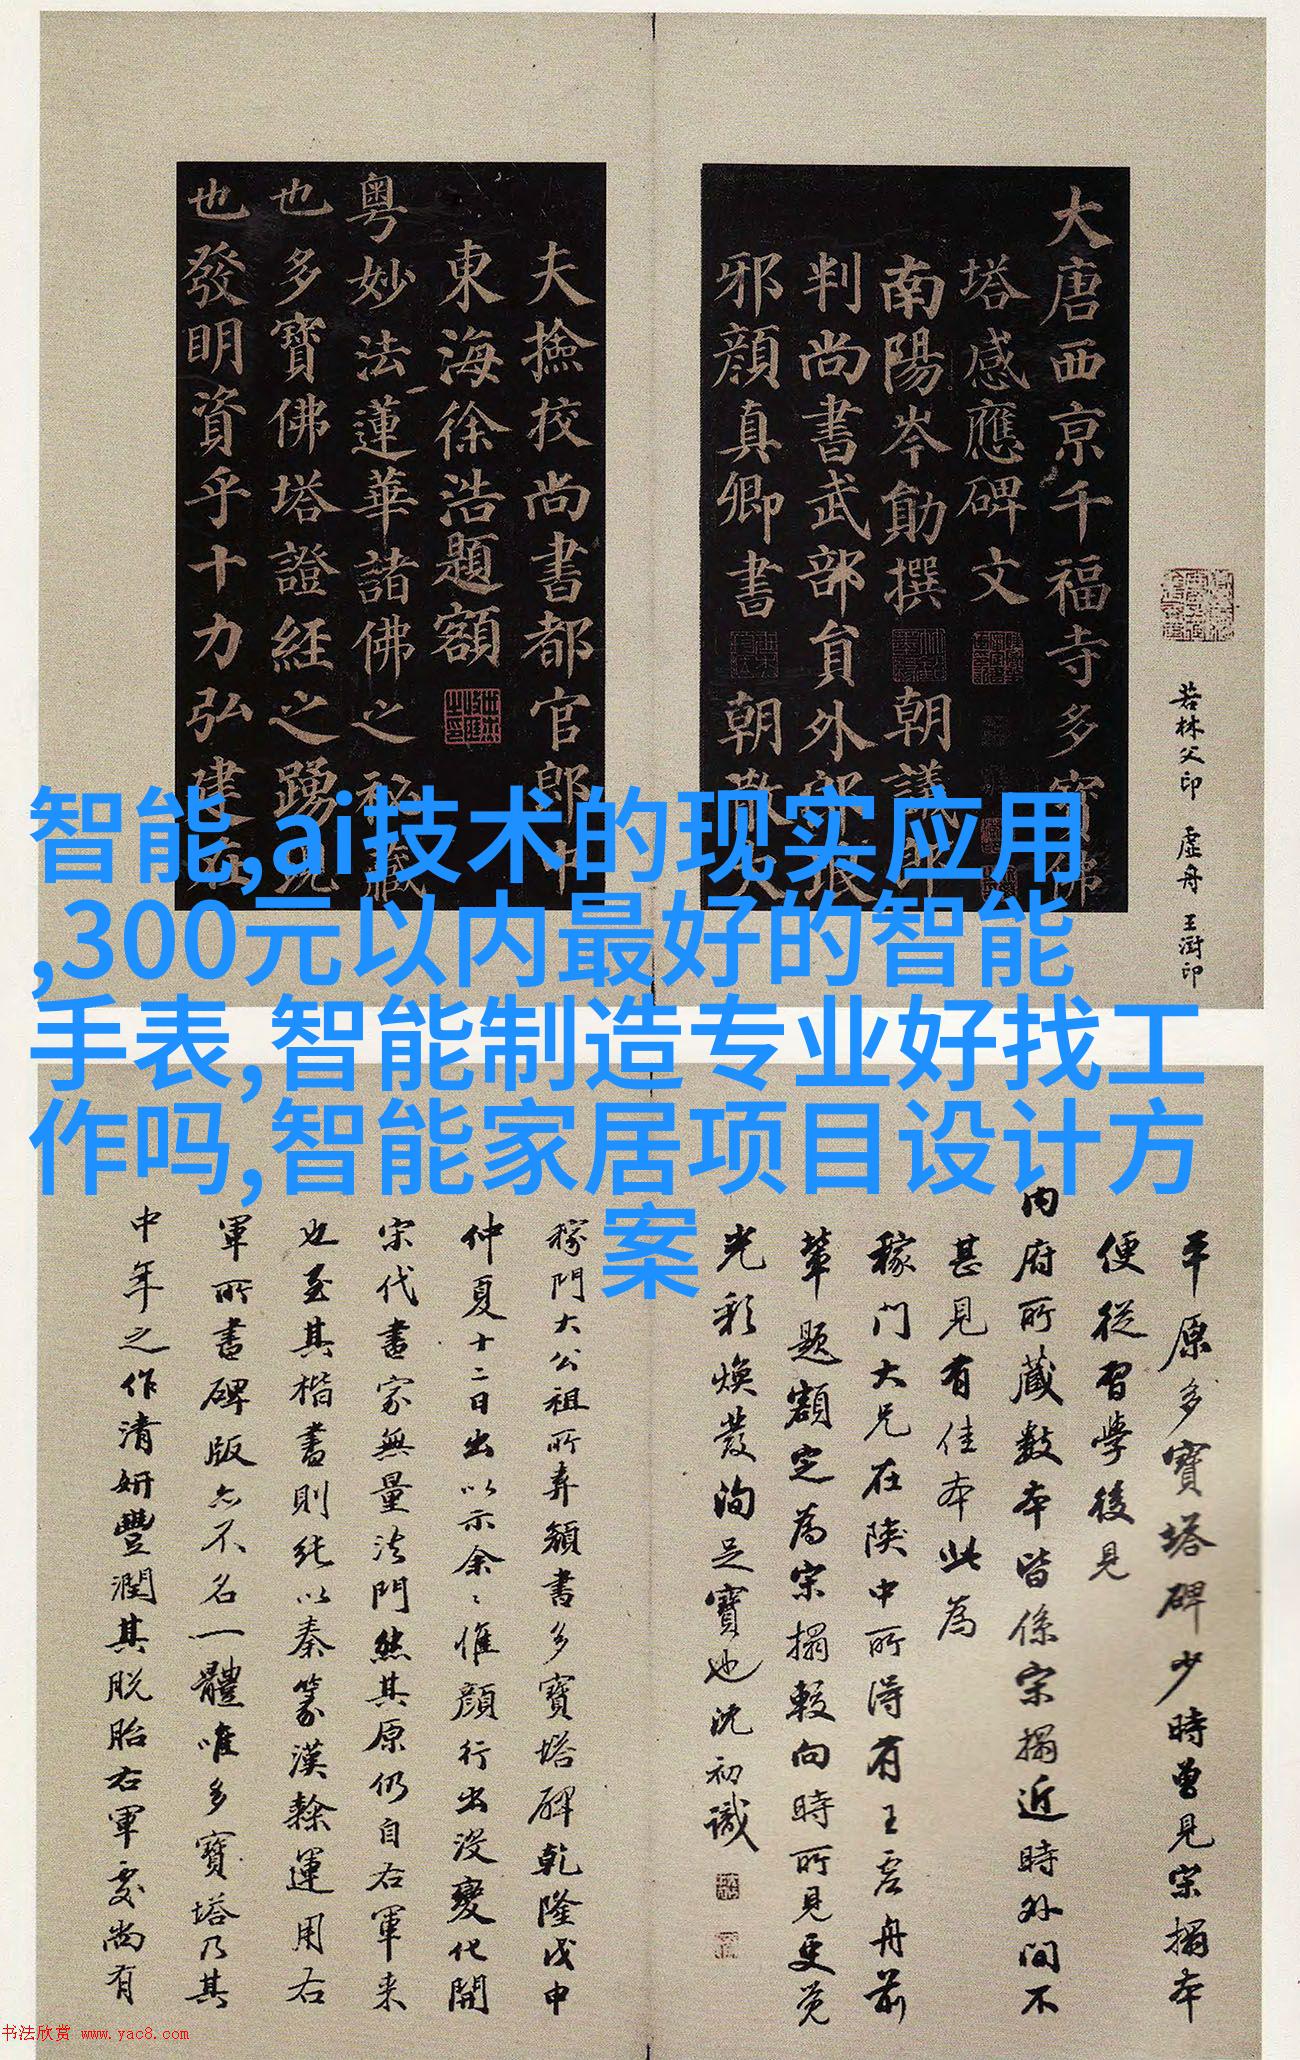 大唐西京千福寺多寶佛
塔感應碑文
南陽岑勛撰
朝議郎
判尚書武部員外郎
邪顔真卿書
朝散大
夫撿挍尚書都官郎中
東海徐浩題額
粤妙法蓮華諸佛之秘藏
也多寶佛塔證經之踴現
也發明資乎十力弘建
若林父印 虛舟 王澍印
智能,ai技术的现实应用
,300元以内最好的智能
手表,智能制造专业好找工
作吗,智能家居项目设计方
案
平原多寶塔碑少時曾見宋搨本
便從習學後見
内府所藏數本皆係宋搨近時外間不
甚見有佳本此為
稼门大兄在陕中所得有王虚舟前
輩題額定為宋搨較向時所見更覺
光彩煥發洵足寶也沈初識
稼門大公祖所弆顔書多寶塔碑乾隆戊申
仲夏十二日出以示余余惟顔行出没變化開
宋代書家無量法門然其原仍自右軍来
也至其楷書則純以秦篆漢隸運用右
軍所書碑版亦不名一體唯多寶塔乃其
中年之作清妍豐潤其脱胎右軍處尚有
书法欣赏 www.yac8.com